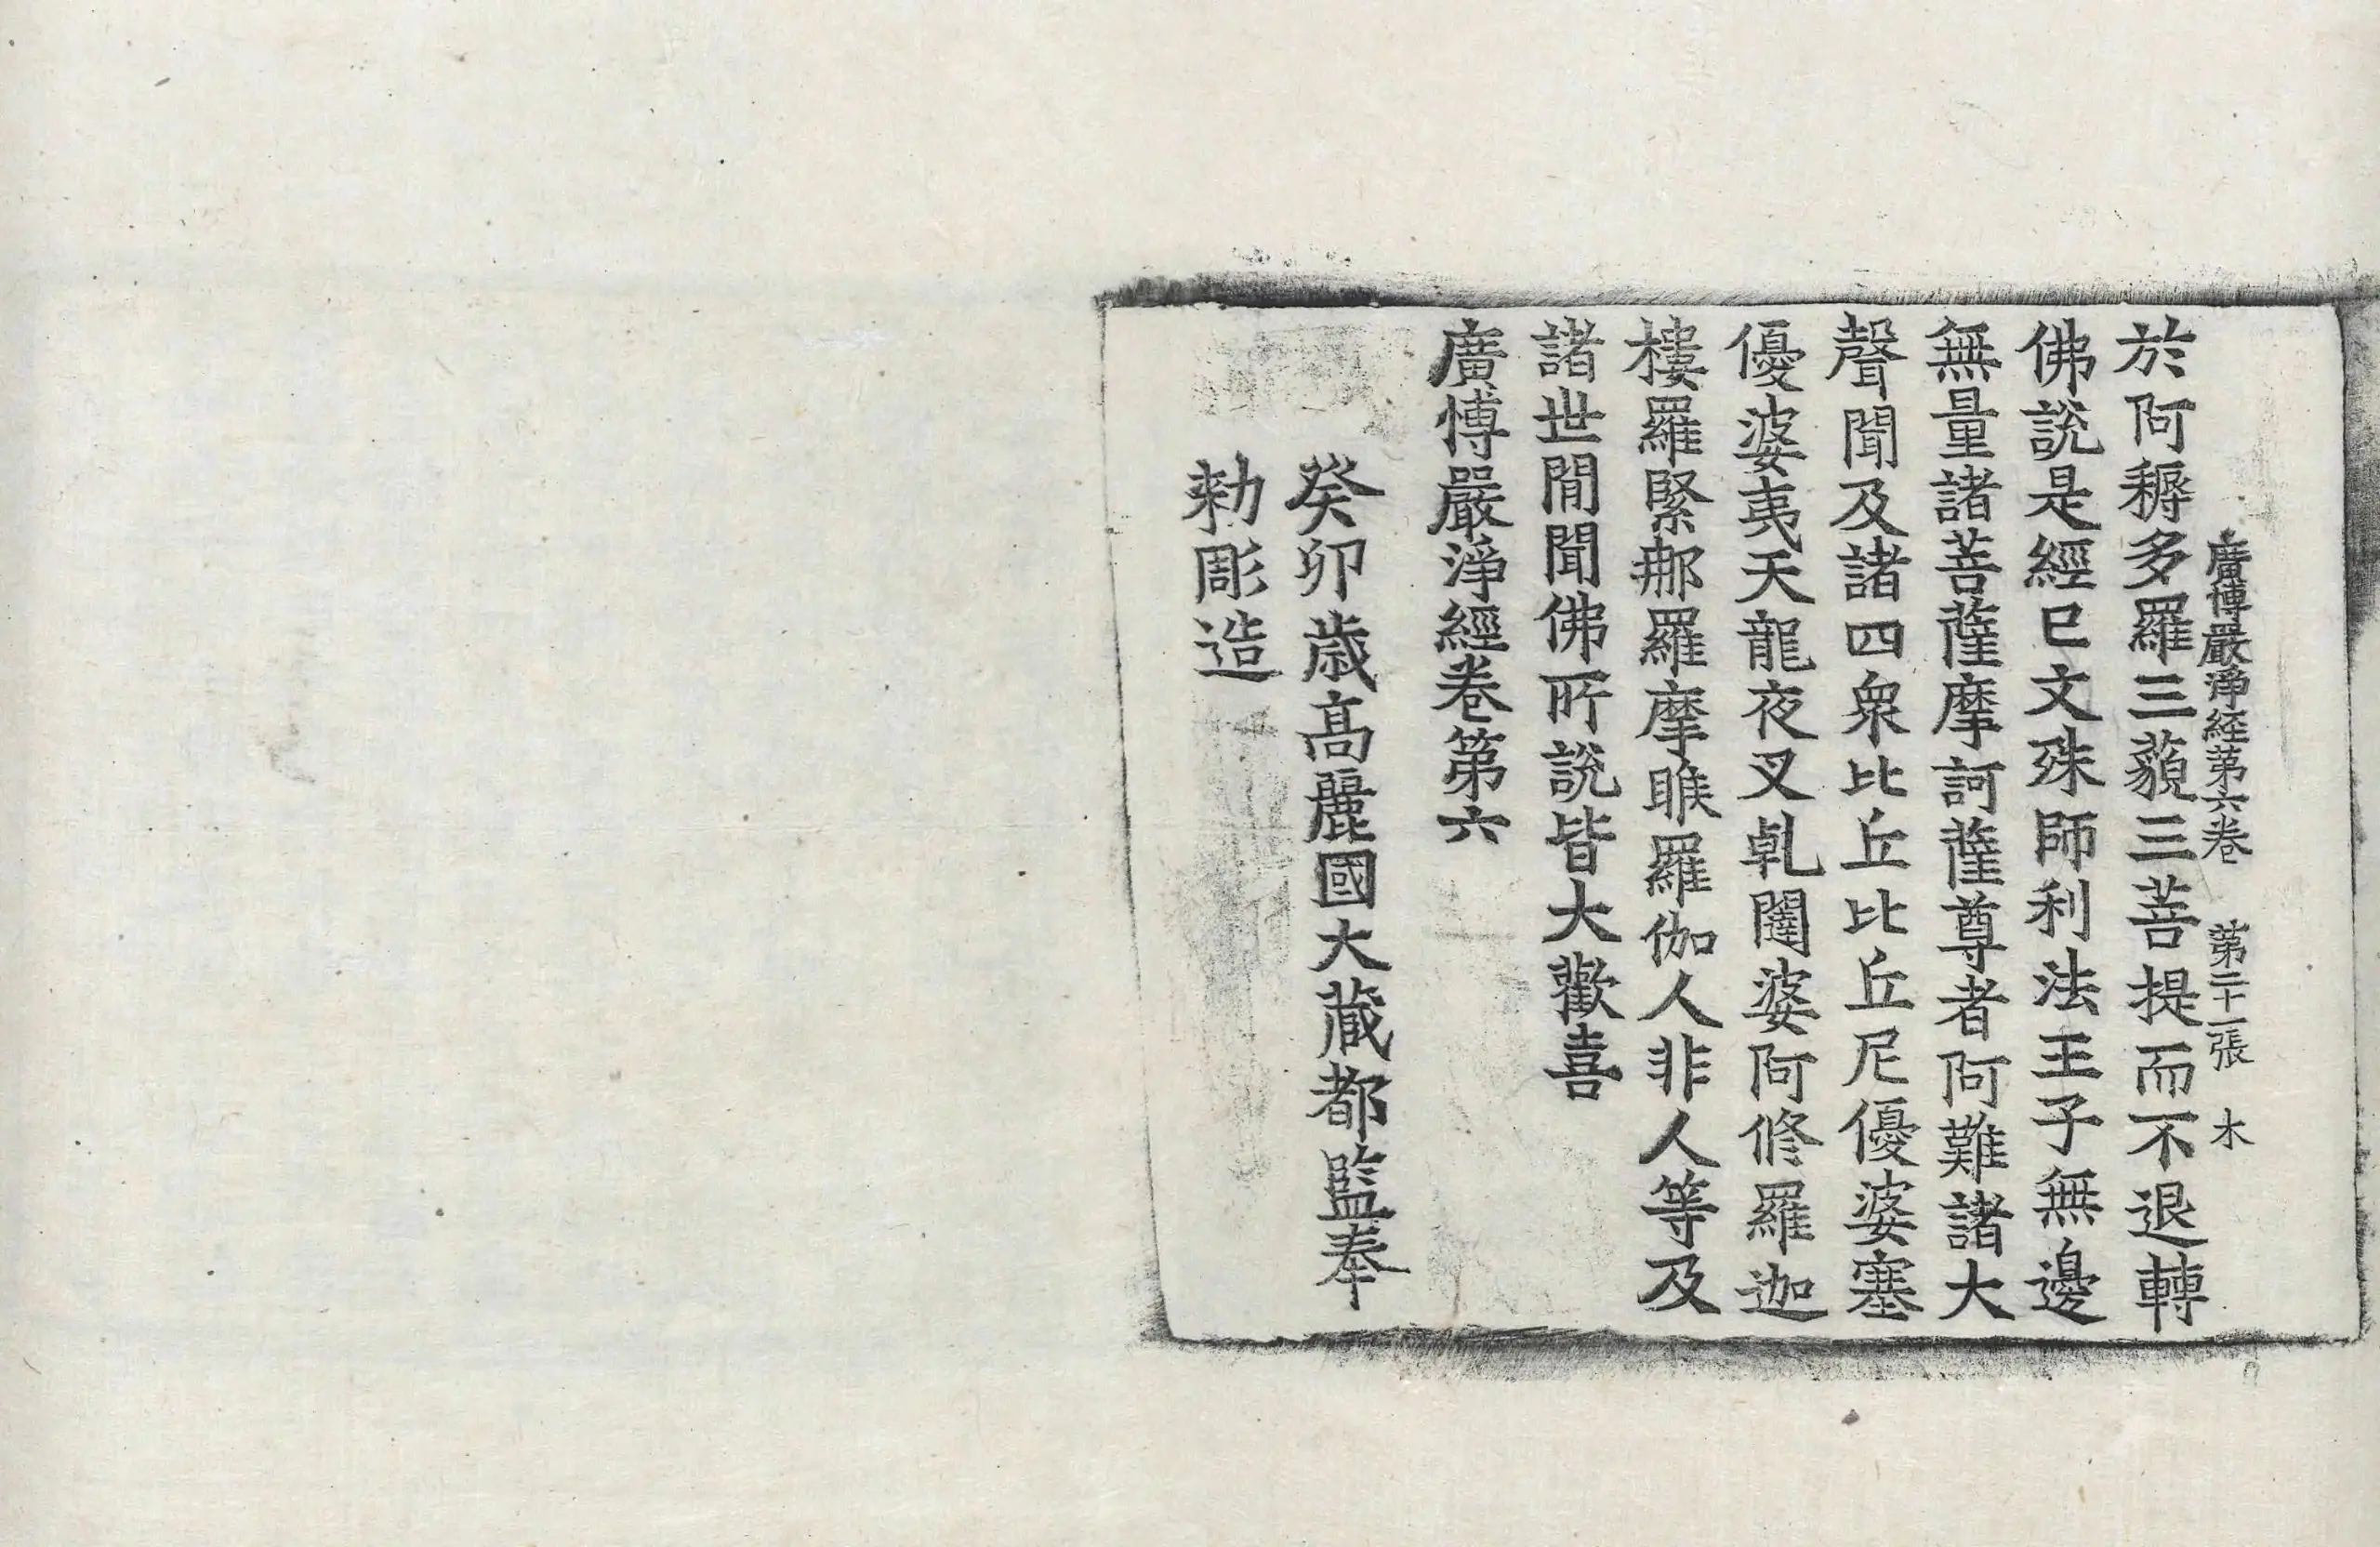 廣博嚴淨経第六卷 第二十一張 木
於阿耨多羅三藐三菩提而不退轉
佛說是經已文殊師利法王子無邊
無量諸菩薩摩訶薩尊者阿難諸大
聲聞及諸四衆比丘比丘尼優婆塞
優婆夷天龍夜叉乹闥婆阿修羅迦
樓羅緊那羅摩睺羅伽人非人等及
諸世閒聞佛所說皆大歡喜
廣博嚴淨經卷第六
癸卯歲高麗國大藏都監奉
勅彫造